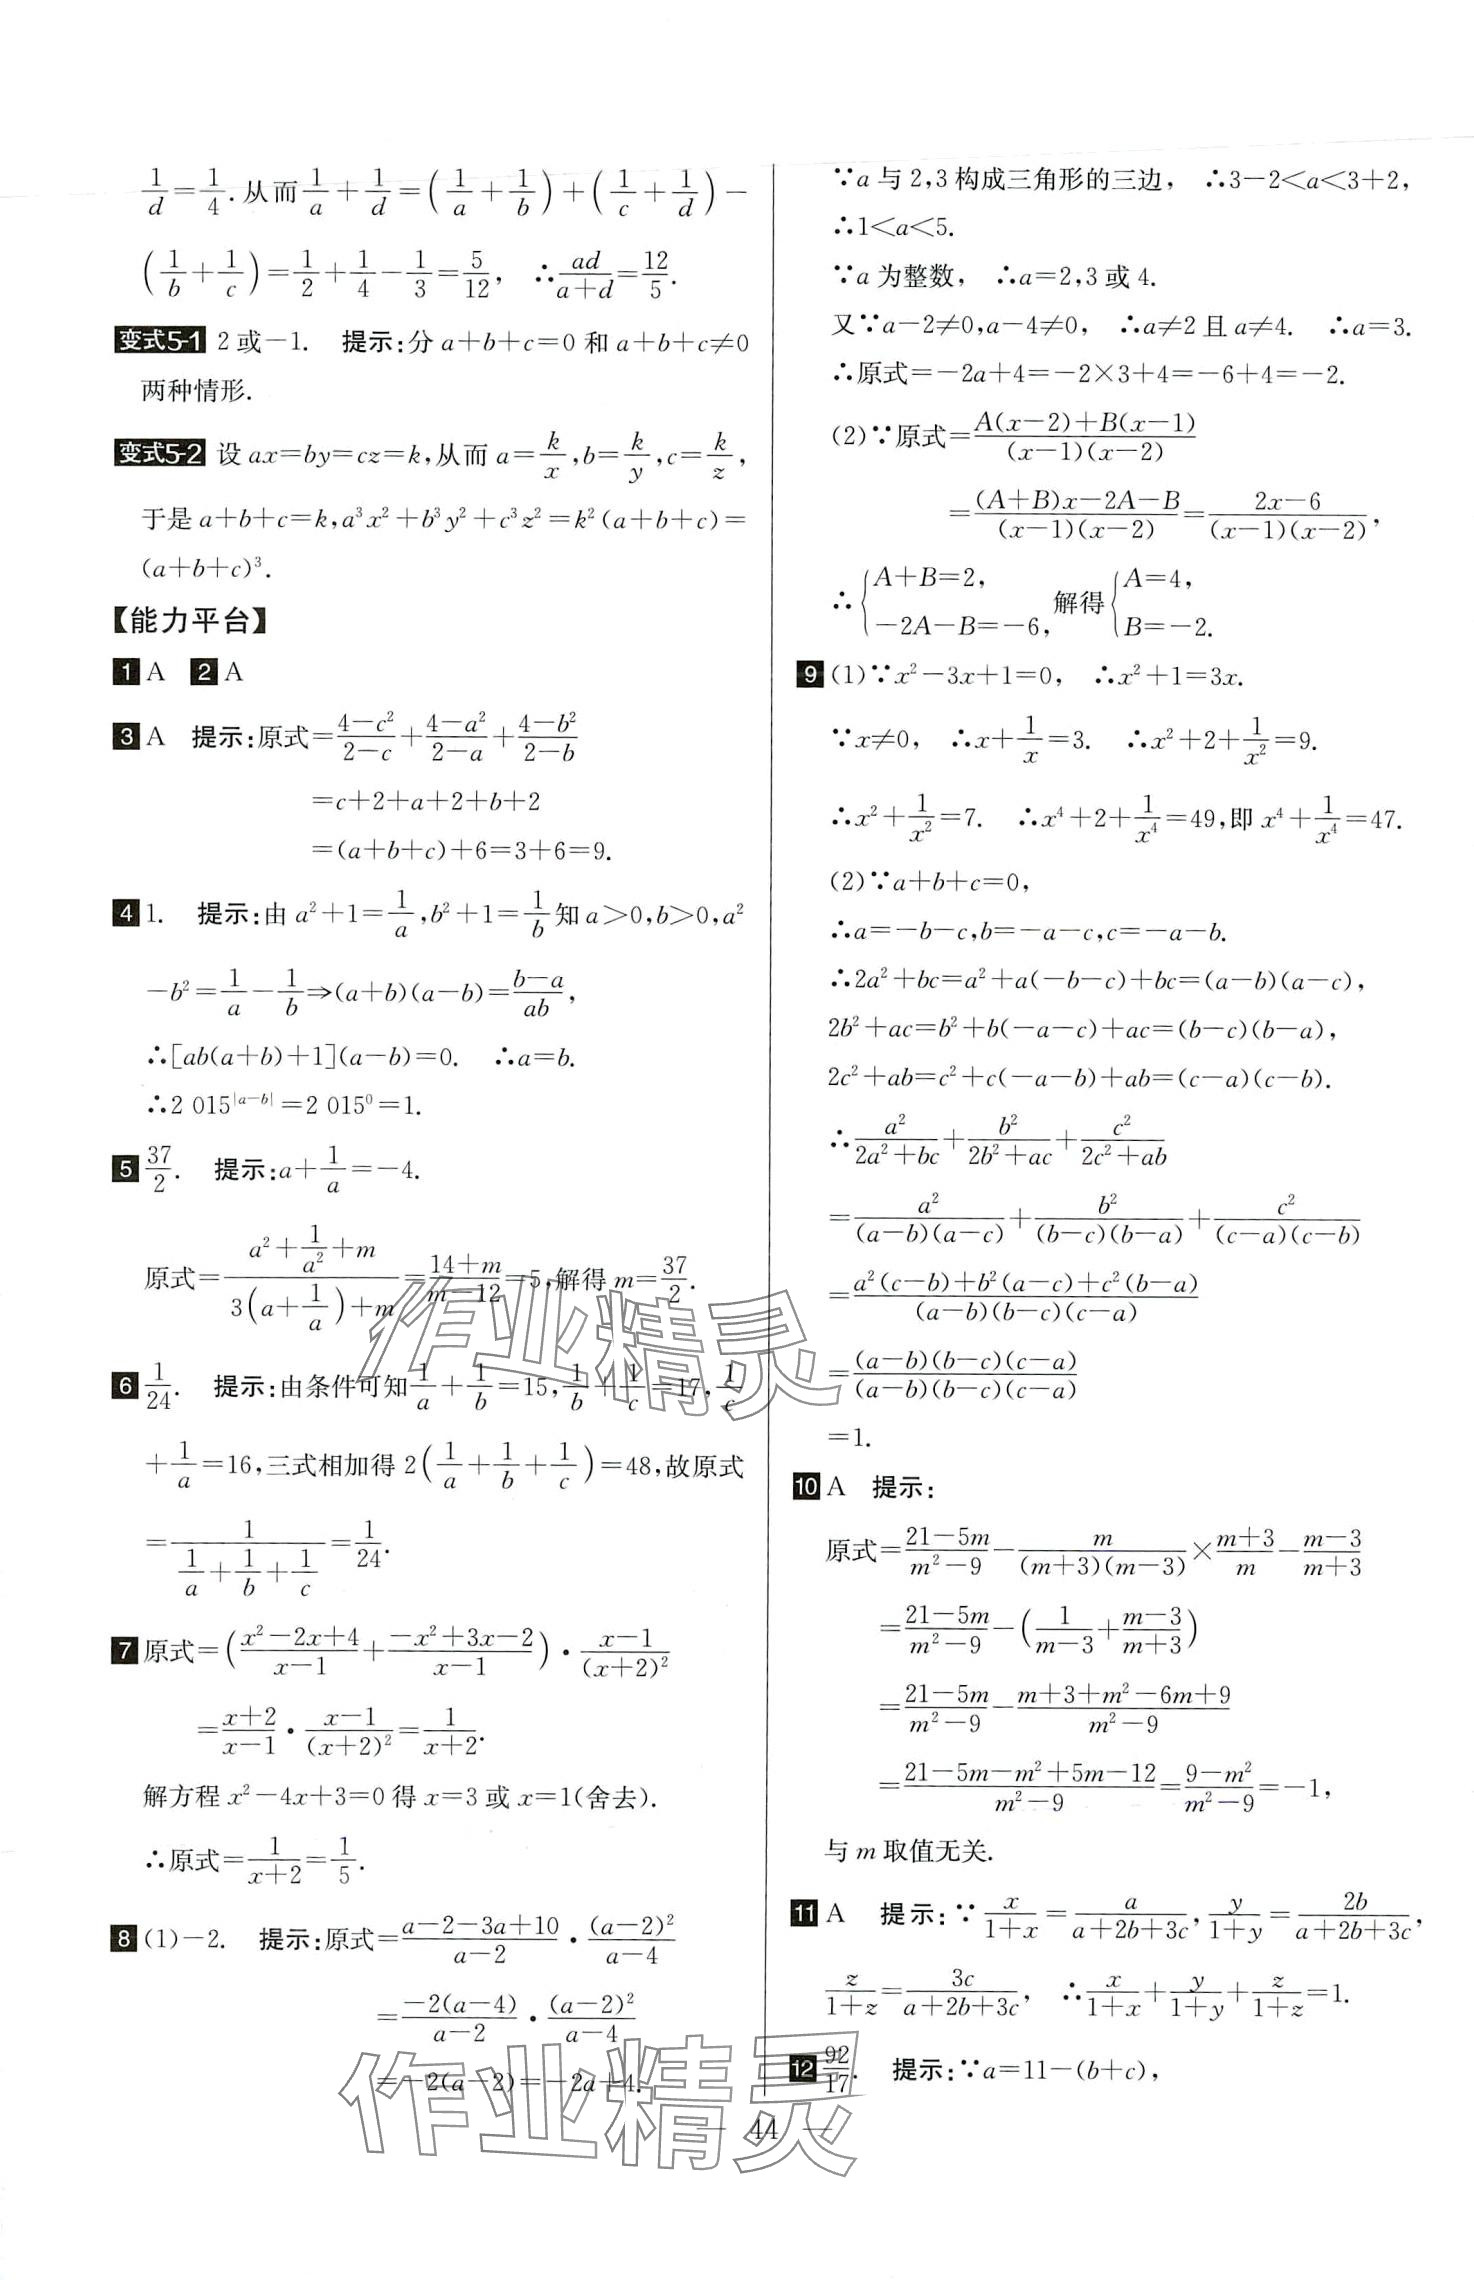 1/d=1/4.从而1/a+1/d=(1/a+1/b)+(1/c+1/d)-
(1/b+1/c)=1/2+1/4-1/3=5/12, ∴ad/(a+d)=12/5.
变式5-1 2或-1. 提示:分a+b+c=0和a+b+c≠0
两种情形.
变式5-2 设ax=by=cz=k,从而a=k/x,b=k/y,c=k/z,
于是a+b+c=k,a³x²+b³y²+c³z²=k²(a+b+c)=
(a+b+c)³.
【能力平台】
1 A 2 A
3 A 提示:原式=(4-c²)/(2-c)+(4-a²)/(2-a)+(4-b²)/(2-b)
=c+2+a+2+b+2
=(a+b+c)+6=3+6=9.
4 1. 提示:由a²+1=1/a,b²+1=1/b知a>0,b>0,a²
-b²=1/a-1/b⇒(a+b)(a-b)=(b-a)/ab,
∴[ab(a+b)+1](a-b)=0. ∴a=b.
∴2 015^|a-b|=2 015⁰=1.
5 37/2. 提示:a+1/a=-4.
原式=(a²+1/a²+m)/(3(a+1/a)+m)=(14+m)/(m-12)=5,解得m=37/2.
6 1/24. 提示:由条件可知1/a+1/b=15,1/b+1/c=17,1/c
+1/a=16,三式相加得2(1/a+1/b+1/c)=48,故原式
=1/(1/a+1/b+1/c)=1/24.
7 原式=((x²-2x+4)/(x-1)+(-x²+3x-2)/(x-1))·(x-1)/(x+2)²
=(x+2)/(x-1)·(x-1)/(x+2)²=1/(x+2).
解方程x²-4x+3=0得x=3或x=1(舍去).
∴原式=1/(x+2)=1/5.
8 (1)-2. 提示:原式=(a-2-3a+10)/(a-2)·(a-2)²/(a-4)
=-2(a-4)/(a-2)·(a-2)²/(a-4)
=-2(a-2)=-2a+4.
∵a与2,3构成三角形的三边, ∴3-2<a<3+2,
∴1<a<5.
∵a为整数, ∴a=2,3或4.
又∵a-2≠0,a-4≠0, ∴a≠2且a≠4. ∴a=3.
∴原式=-2a+4=-2×3+4=-6+4=-2.
(2)∵原式=(A(x-2)+B(x-1))/((x-1)(x-2))
=((A+B)x-2A-B)/((x-1)(x-2))=(2x-6)/((x-1)(x-2)),
∴{A+B=2, -2A-B=-6, 解得{A=4, B=-2.
9 (1)∵x²-3x+1=0, ∴x²+1=3x.
∵x≠0, ∴x+1/x=3. ∴x²+2+1/x²=9.
∴x²+1/x²=7. ∴x⁴+2+1/x⁴=49,即x⁴+1/x⁴=47.
(2)∵a+b+c=0,
∴a=-b-c,b=-a-c,c=-a-b.
∴2a²+bc=a²+a(-b-c)+bc=(a-b)(a-c),
2b²+ac=b²+b(-a-c)+ac=(b-c)(b-a),
2c²+ab=c²+c(-a-b)+ab=(c-a)(c-b).
∴a²/(2a²+bc)+b²/(2b²+ac)+c²/(2c²+ab)
=a²/((a-b)(a-c))+b²/((b-c)(b-a))+c²/((c-a)(c-b))
=(a²(c-b)+b²(a-c)+c²(b-a))/((a-b)(b-c)(c-a))
=((a-b)(b-c)(c-a))/((a-b)(b-c)(c-a))
=1.
10 A 提示:
原式=(21-5m)/(m²-9)-m/((m+3)(m-3))×(m+3)/m-(m-3)/(m+3)
=(21-5m)/(m²-9)-(1/(m-3)+(m-3)/(m+3))
=(21-5m)/(m²-9)-(m+3+m²-6m+9)/(m²-9)
=(21-5m-m²+5m-12)/(m²-9)=(9-m²)/(m²-9)=-1,
与m取值无关.
11 A 提示:∵x/(1+x)=a/(a+2b+3c),y/(1+y)=2b/(a+2b+3c),
z/(1+z)=3c/(a+2b+3c), ∴x/(1+x)+y/(1+y)+z/(1+z)=1.
12 92/17. 提示:∵a=11-(b+c),
— 44 —
作业精灵
作业精灵